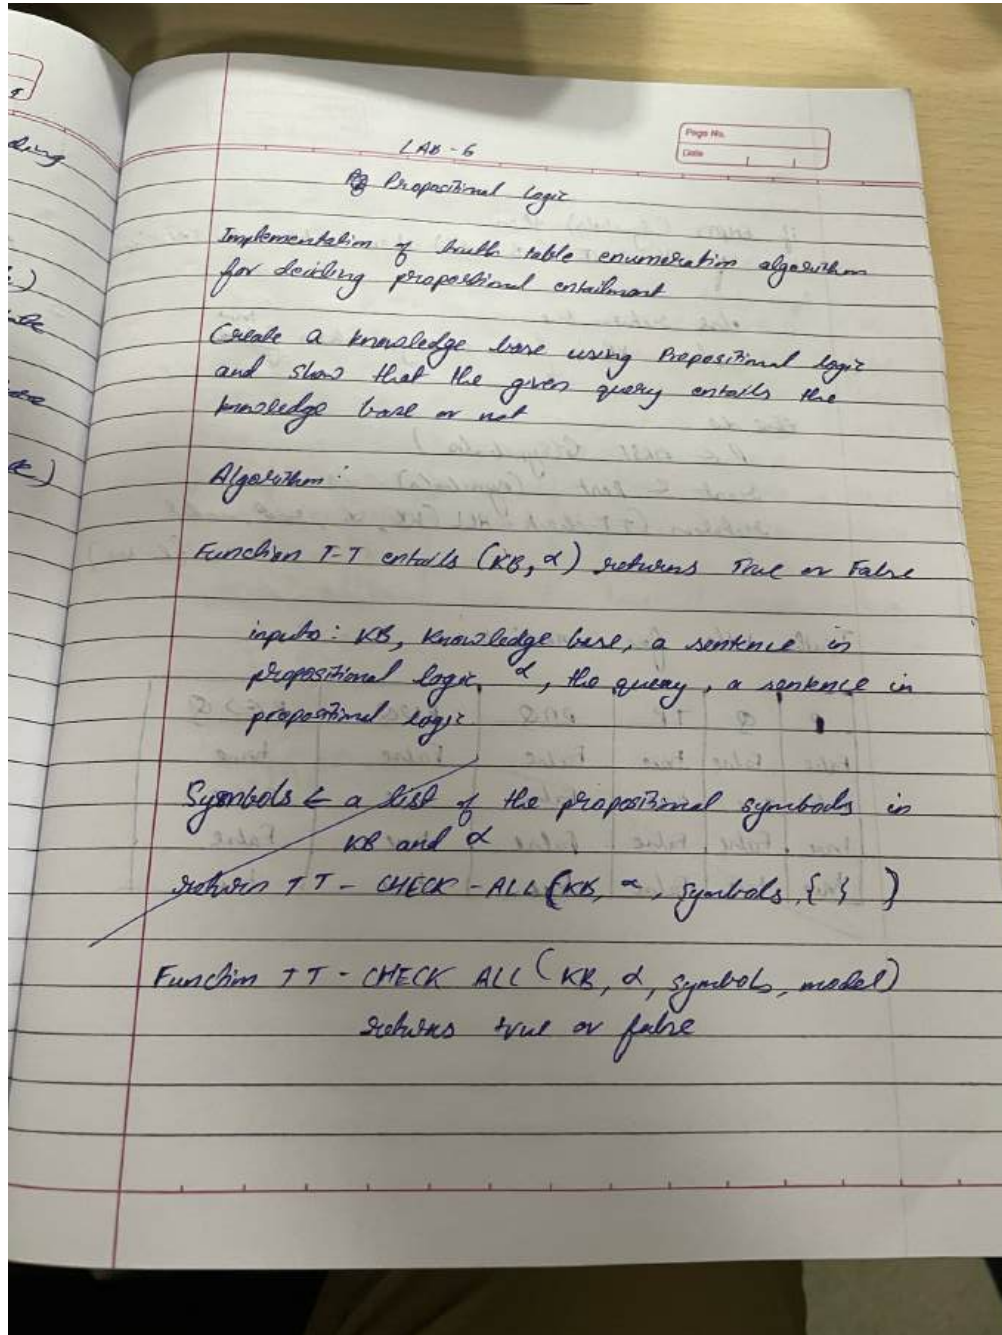 Page No.
Date
LAB-6
Propositional Logic
Implementation of truth table enumeration algorithm
for deciding propositional entailment
Create a knowledge base using Propositional logic
and show that the given query entails the
knowledge base or not
Algorithm:
Function T-T entails (KB, α) returns True or False
inputs: KB, Knowledge base, a sentence in
propositional logic, α, the query, a sentence in
propositional logic
Symbols ← a list of the propositional symbols in
KB and α
return TT - CHECK - ALL (KB, α, Symbols, { } )
Function TT - CHECK ALL (KB, α, symbols, model)
returns true or false